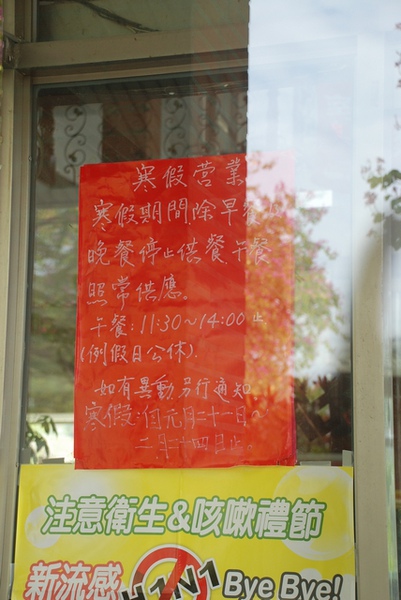 寒假營業
寒假期間除早餐
晚餐停止供餐,午餐
照常供應。
午餐:11:30~14:00止
(例假日公休).
如有異動另行通知
寒假:自元月二十一日~
二月二十四日止.
注意衛生&咳嗽禮節
新流感 H1N1 Bye Bye!